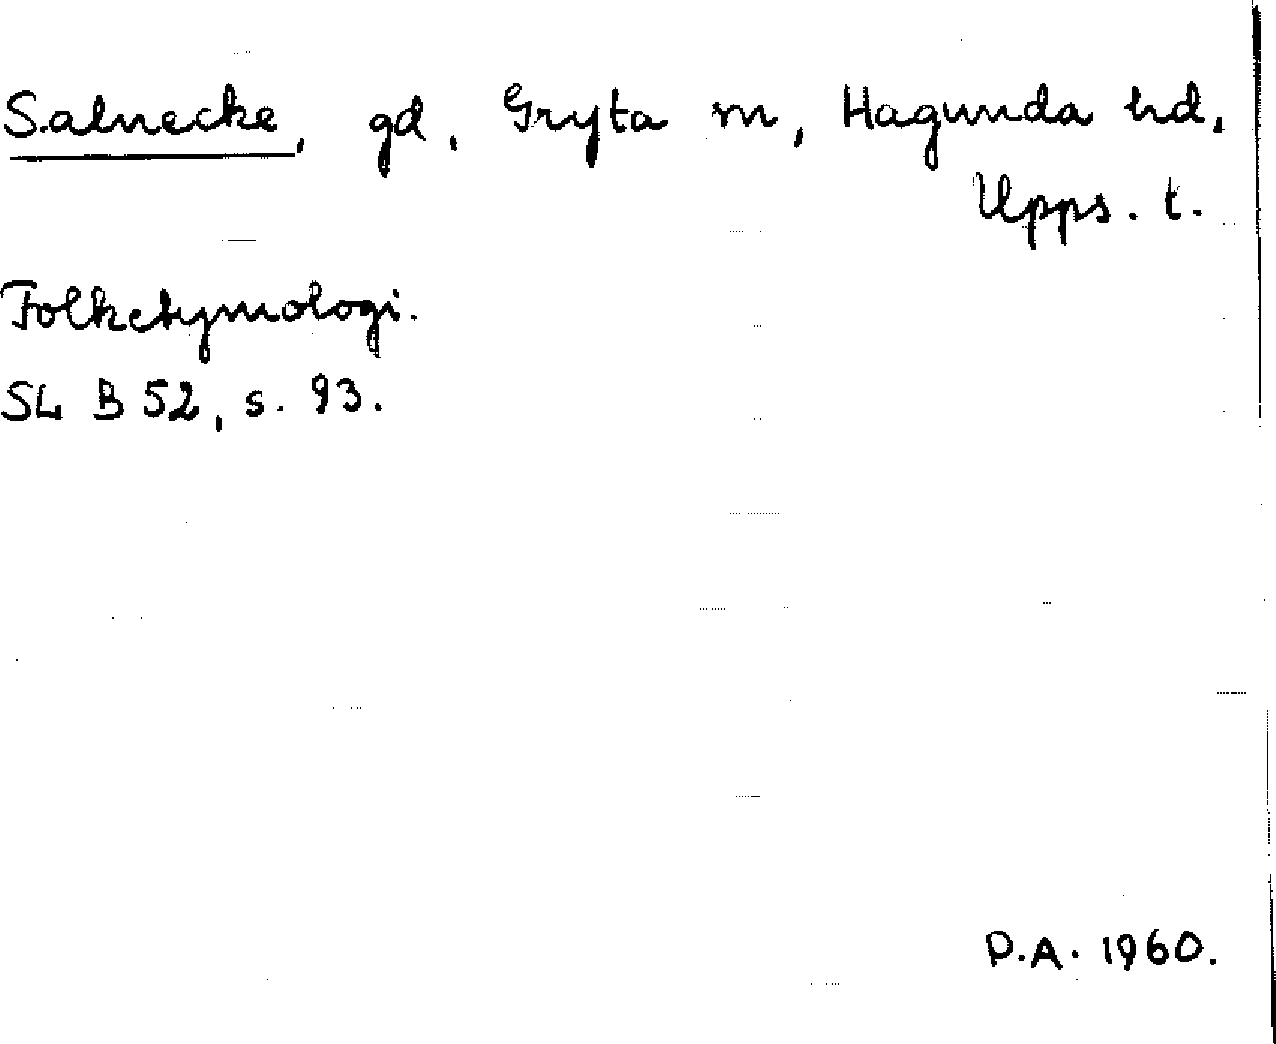 Salnecke, gd, Gryta sn, Hagunda hd,
Upps. l.
Folketymologi.
SL B 52, s. 93.
P.A. 1960.